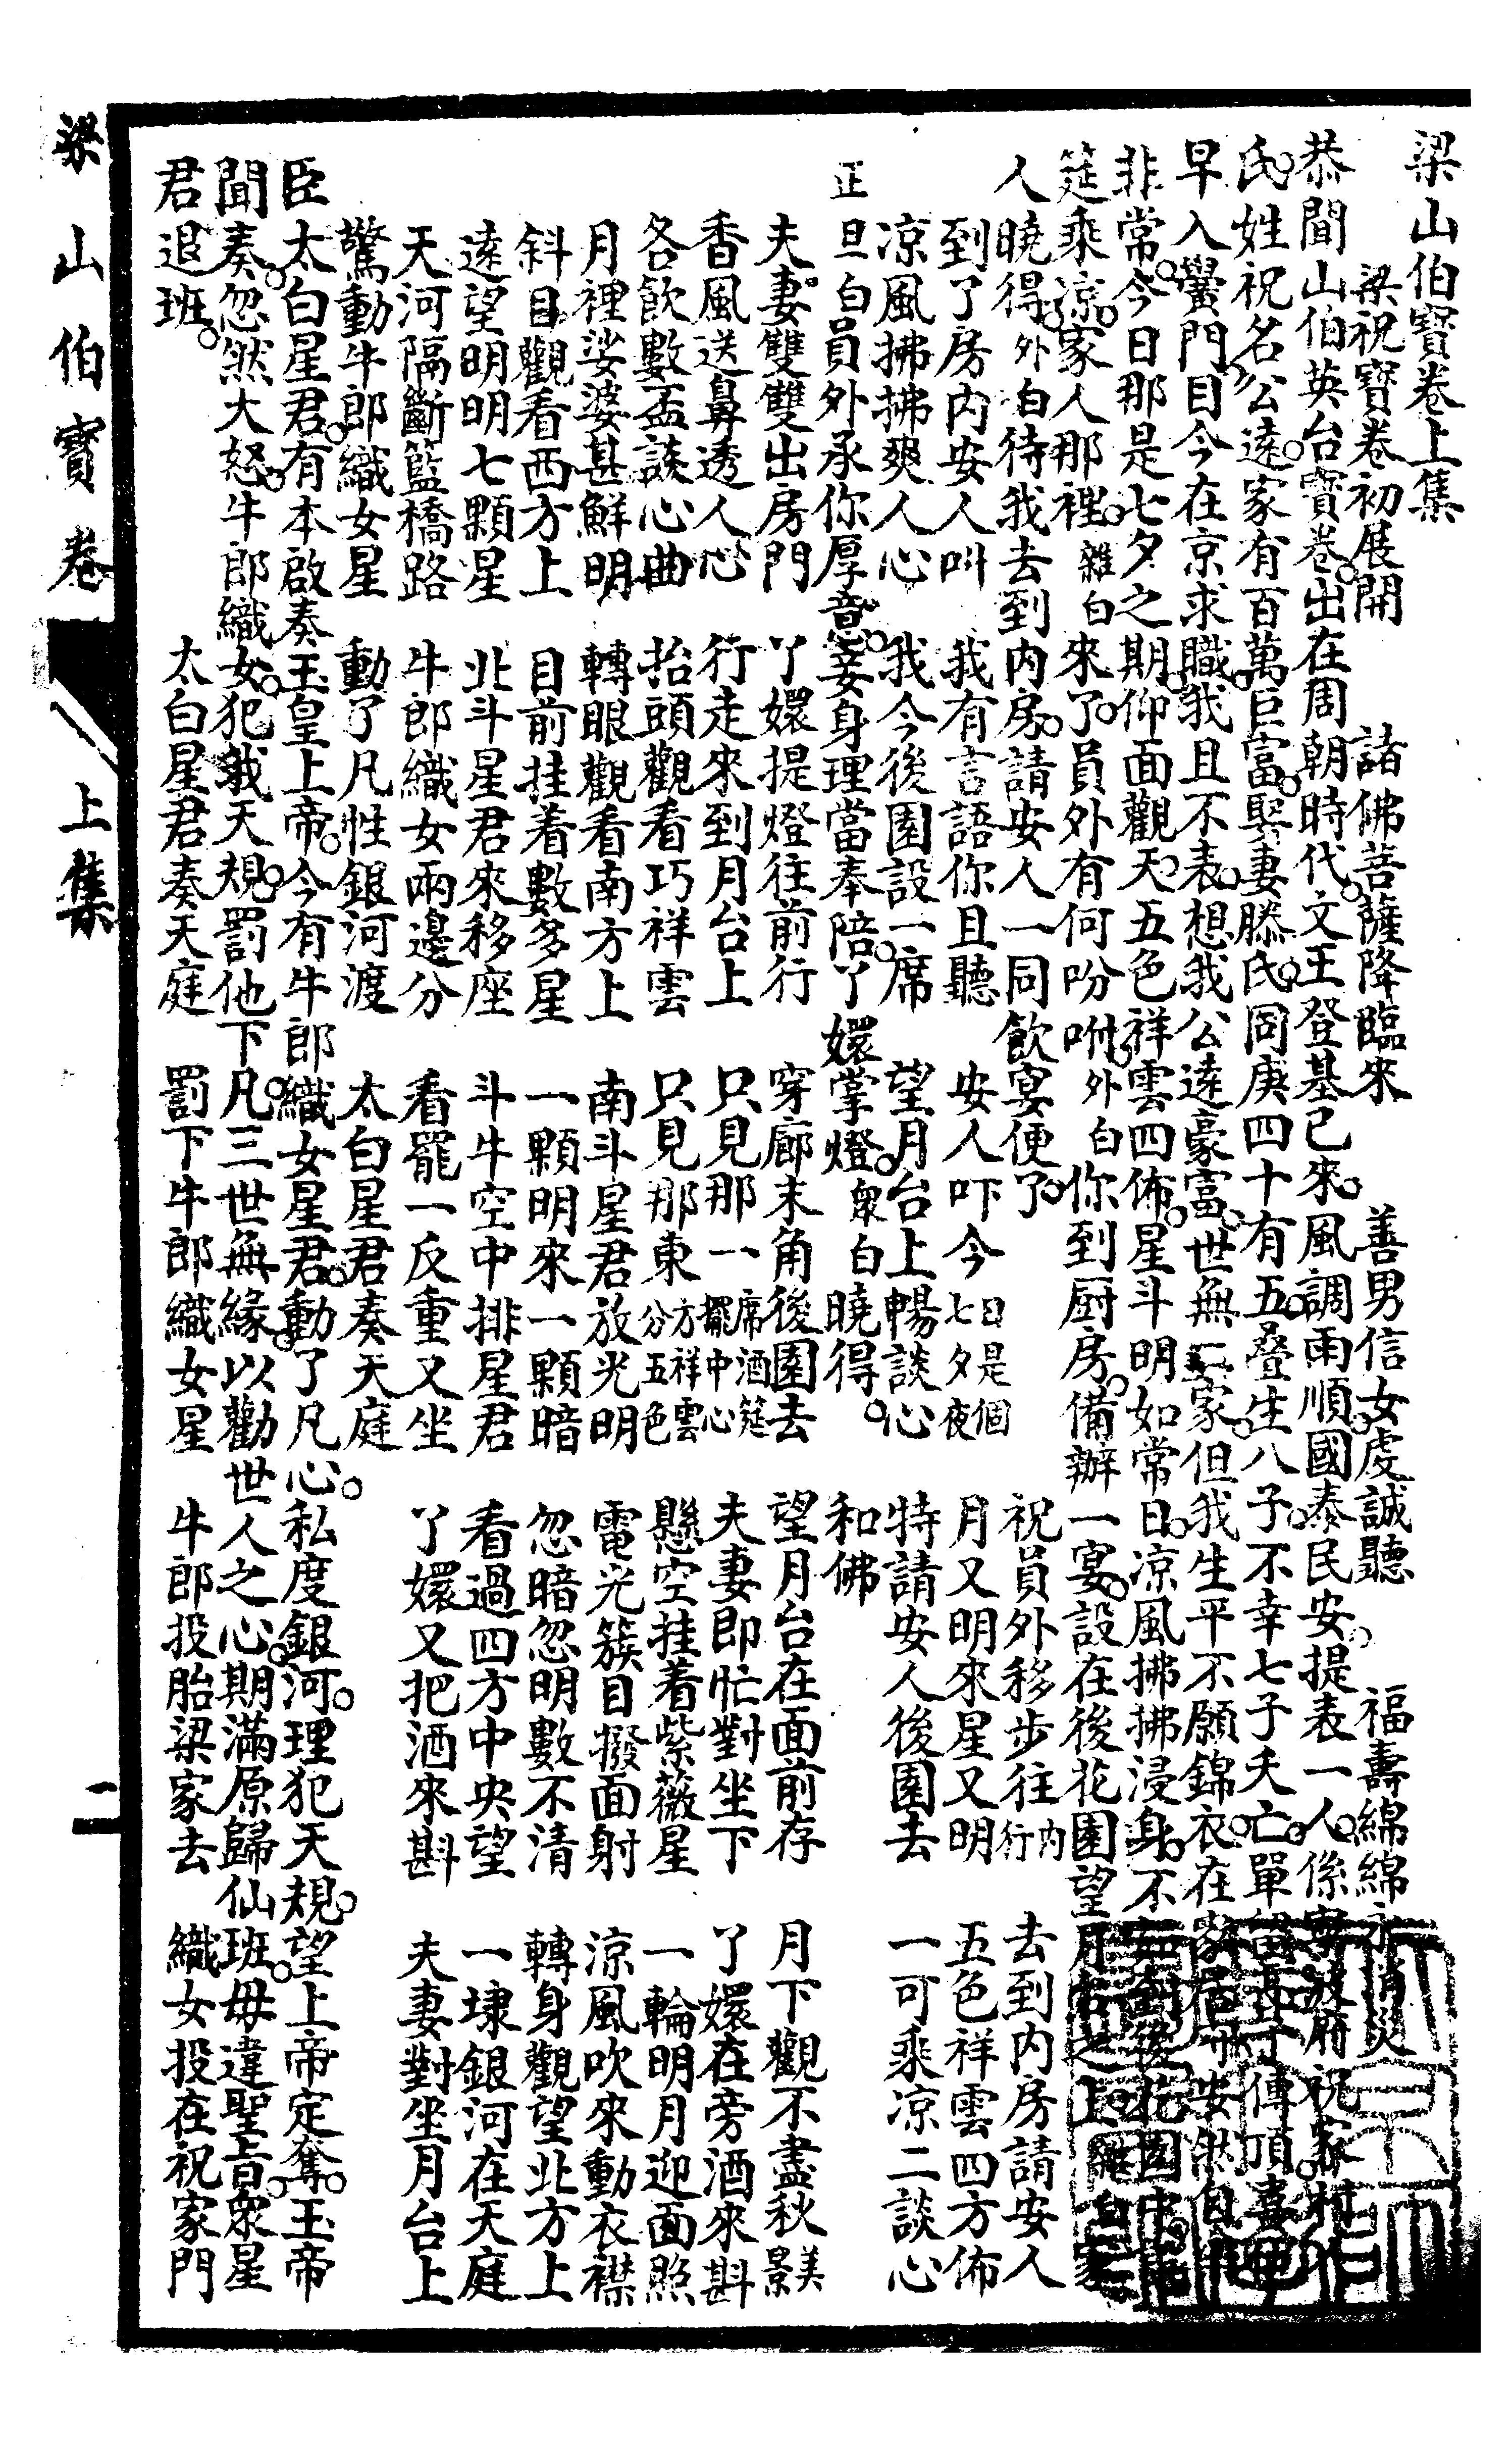 梁山伯寶卷上集
梁祝寶卷初展開　諸佛菩薩降臨來　善男信女虔誠聽　福壽綿綿永消災
恭聞山伯英台寶卷。出在周朝時代。文王登基已來。風調雨順。國泰民安。提表一人。係寧波府祝家村人
氏。姓祝名公遠。家有百萬巨富。娶妻滕氏。同庚四十有五。叠生八子。不幸七子夭亡。單留
早入黌門。目今在京求職。我且不表。想我公遠豪富。世無二家。但我生平不願錦衣。在家居
非常。今日那是七夕之期。仰面觀天。五色祥雲四佈。星斗明如常日。凉風拂拂浸身。不如到後花園中
筵乘凉。家人那裡。雜白來了。員外有何吩咐。外白你到厨房。備辦一宴。設在後花園望月台之上。雜白家
人曉得。外白待我去到內房。請安人一同飲宴便了。祝員外移步往內行　去到內房請安人
到了房內安人叫　我有言語你且聽　安人吓今日是個七夕夜　月又明來星又明　五色祥雲四方佈
凉風拂拂爽人心　我今後園設一席　望月台上暢談心　特請安人後園去　一可乘凉二談心
正旦白員外承你厚意。妾身理當奉陪。丫嬛掌燈。衆白曉得。　和佛
夫妻雙雙出房門　丫嬛提燈往前行　穿廊末角後園去　望月台在面前存　月下觀不盡秋美景
香風送鼻透人心　行走來到月台上　只見那一席酒筵擺中心　夫妻即忙對坐下　丫嬛在旁酒來斟
各飲數盃談心曲　抬頭觀看巧祥雲　只見那東方祥雲分五色　懸空挂着紫薇星　一輪明月迎面照
月裡娑婆甚鮮明　轉眼觀看南方上　南斗星君放光明　電光簇目撥面射　凉風吹來動衣襟
斜目觀看西方上　目前挂着數多星　一顆明來一顆暗　忽暗忽明數不清　轉身觀望北方上
遠望明明七顆星　北斗星君來移座　斗牛空中排星君　看過四方中央望　一埭銀河在天庭
天河隔斷籃橋路　牛郎織女兩邊分　看罷一反重又坐　丫嬛又把酒來斟　夫妻對坐月台上
驚動牛郎織女星　動了凡性銀河渡　太白星君奏天庭
臣太白星君。有本啟奏玉皇上帝。今有牛郎織女星君。動了凡心。私度銀河。理犯天規。望上帝定奪。玉帝
聞奏。忽然大怒。牛郎織女。犯我天規。罰他下凡。三世無緣。以勸世人之心。期滿原歸仙班。毋違聖旨。衆星
君退班。　太白星君奏天庭　罰下牛郎織女星　牛郎投胎梁家去　織女投在祝家門
梁山伯寶卷　上集　二